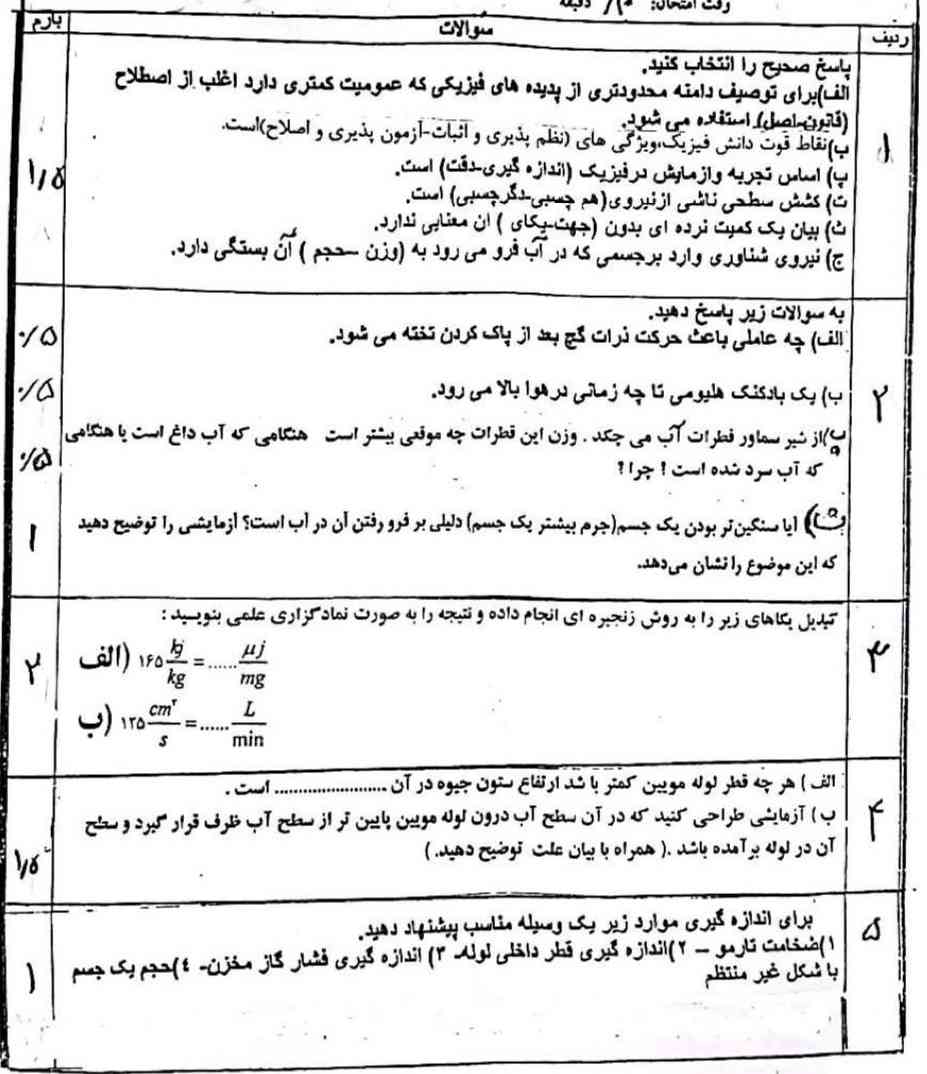 وقت امتحان: دقیقه
ردیف
سوالات
بارم
۱
پاسخ صحیح را انتخاب کنید.
الف)برای توصیف دامنه محدودتری از پدیده های فیزیکی که عمومیت کمتری دارد اغلب از اصطلاح
(قانون-اصل) استفاده می شود.
ب)نقاط قوت دانش فیزیک،ویژگی های (نظم پذیری و اثبات-آزمون پذیری و اصلاح)است.
پ) اساس تجربه وازمایش درفیزیک (اندازه گیری-دقت) است.
ت) کشش سطحی ناشی ازنیروی(هم چسبی-دگرچسبی) است.
ث) بیان یک کمیت نرده ای بدون (جهت-یکای ) ان معنایی ندارد.
ج) نیروی شناوری وارد برجسمی که در آب فرو می رود به (وزن –حجم ) آن بستگی دارد.
۱/۵
۲
به سوالات زیر پاسخ دهید.
الف) چه عاملی باعث حرکت ذرات گچ بعد از پاک کردن تخته می شود.
۰/۵
ب) یک بادکنک هلیومی تا چه زمانی درهوا بالا می رود.
۰/۵
پ)از شیر سماور قطرات آب می چکد . وزن این قطرات چه موقعی بیشتر است هنگامی که آب داغ است یا هنگامی
که آب سرد شده است ! چرا ؟
۰/۵
ایا سنگین‌تر بودن یک جسم(جرم بیشتر یک جسم) دلیلی بر فرو رفتن آن در آب است؟ آزمایشی را توضیح دهید
که این موضوع را نشان می‌دهد.
۱
۳
تبدیل یکاهای زیر را به روش زنجیره ای انجام داده و نتیجه را به صورت نمادگزاری علمی بنویسید :
الف) ۱۶۵ kj/kg = ...... µj/mg
ب) ۱۲۵ cm³/s = ...... L/min
۲
۴
الف ) هر چه قطر لوله مویین کمتر با شد ارتفاع ستون جیوه در آن ........................ است .
ب ) آزمایشی طراحی کنید که در آن سطح آب درون لوله مویین پایین تر از سطح آب ظرف قرار گیرد و سطح
آن در لوله برآمده باشد .( همراه با بیان علت توضیح دهید. )
۱/۵
۵
برای اندازه گیری موارد زیر یک وسیله مناسب پیشنهاد دهید.
۱)ضخامت تارمو – ۲)اندازه گیری قطر داخلی لوله- ۳) اندازه گیری فشار گاز مخزن- ٤)حجم یک جسم
با شکل غیر منتظم
۱